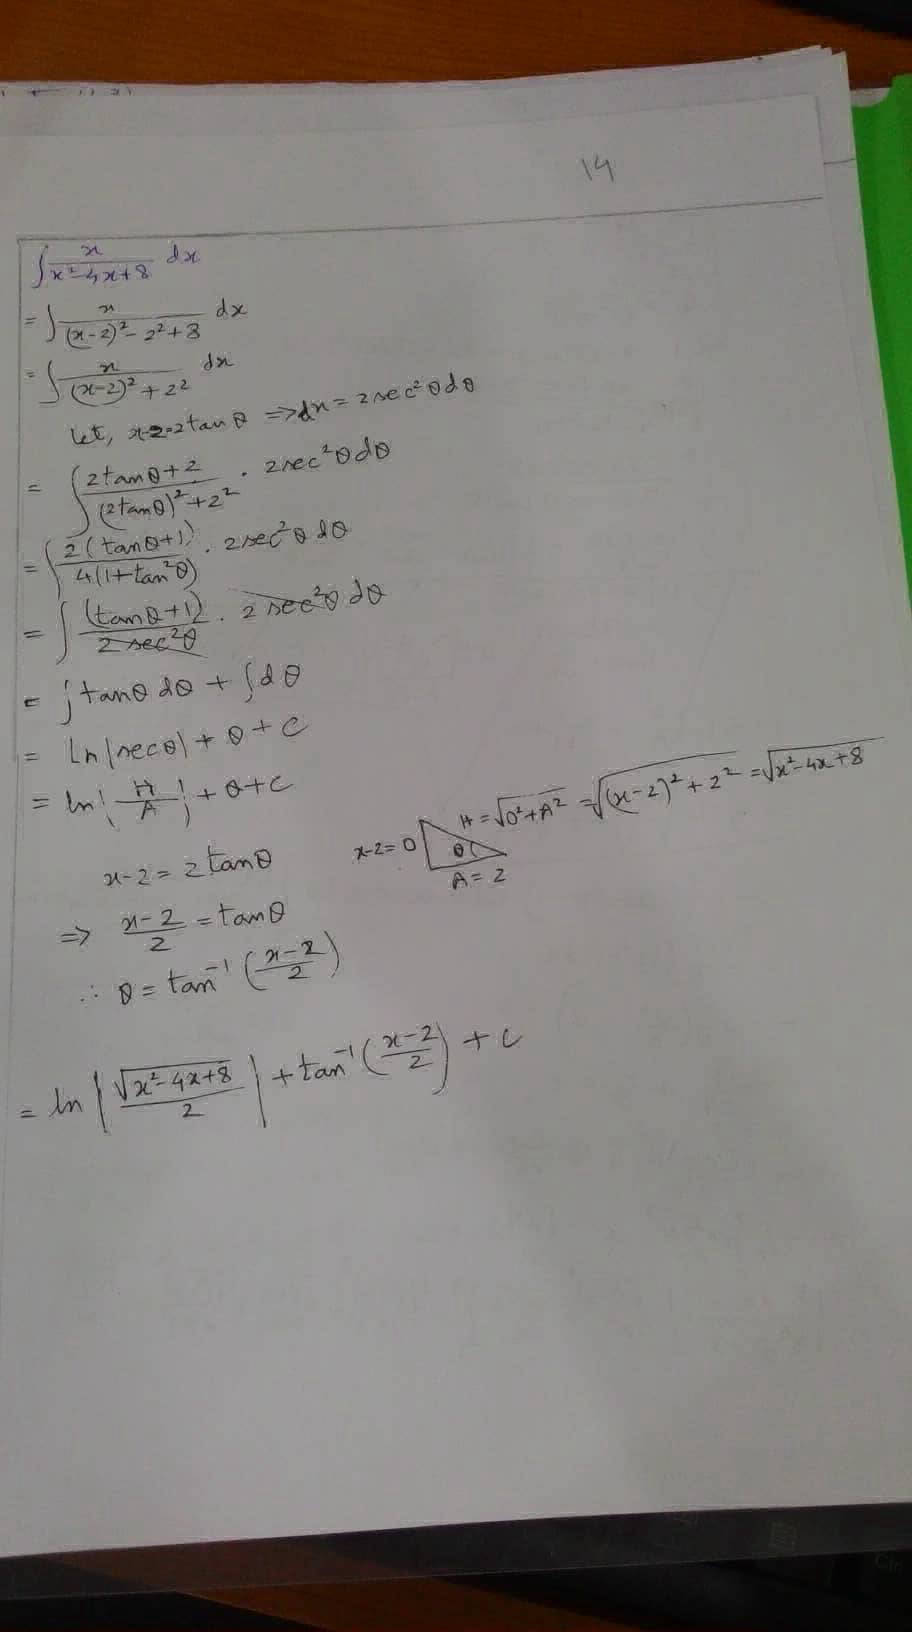 14
∫ x/(x²-4x+8) dx
= ∫ x/((x-2)² - 2² + 8) dx
= ∫ x/((x-2)² + 2²) dx
Let, x-2=2tanθ ⇒ dx = 2sec²θdθ
= ∫ (2tanθ+2)/((2tanθ)²+2²) . 2sec²θdθ
= ∫ 2(tanθ+1)/(4(1+tan²θ)) . 2sec²θdθ
= ∫ (tanθ+1)/(2sec²θ) . 2sec²θdθ
= ∫tanθdθ + ∫dθ
= ln|secθ| + θ + C
= ln|H/A| + θ+C
H = √(O²+A²) = √((x-2)²+2²) = √(x²-4x+8)
x-2= O
θ
A = 2
x-2 = 2tanθ
⇒ (x-2)/2 = tanθ
∴ θ = tan⁻¹((x-2)/2)
= ln|√(x²-4x+8)/2| + tan⁻¹((x-2)/2) + C
Ctrl